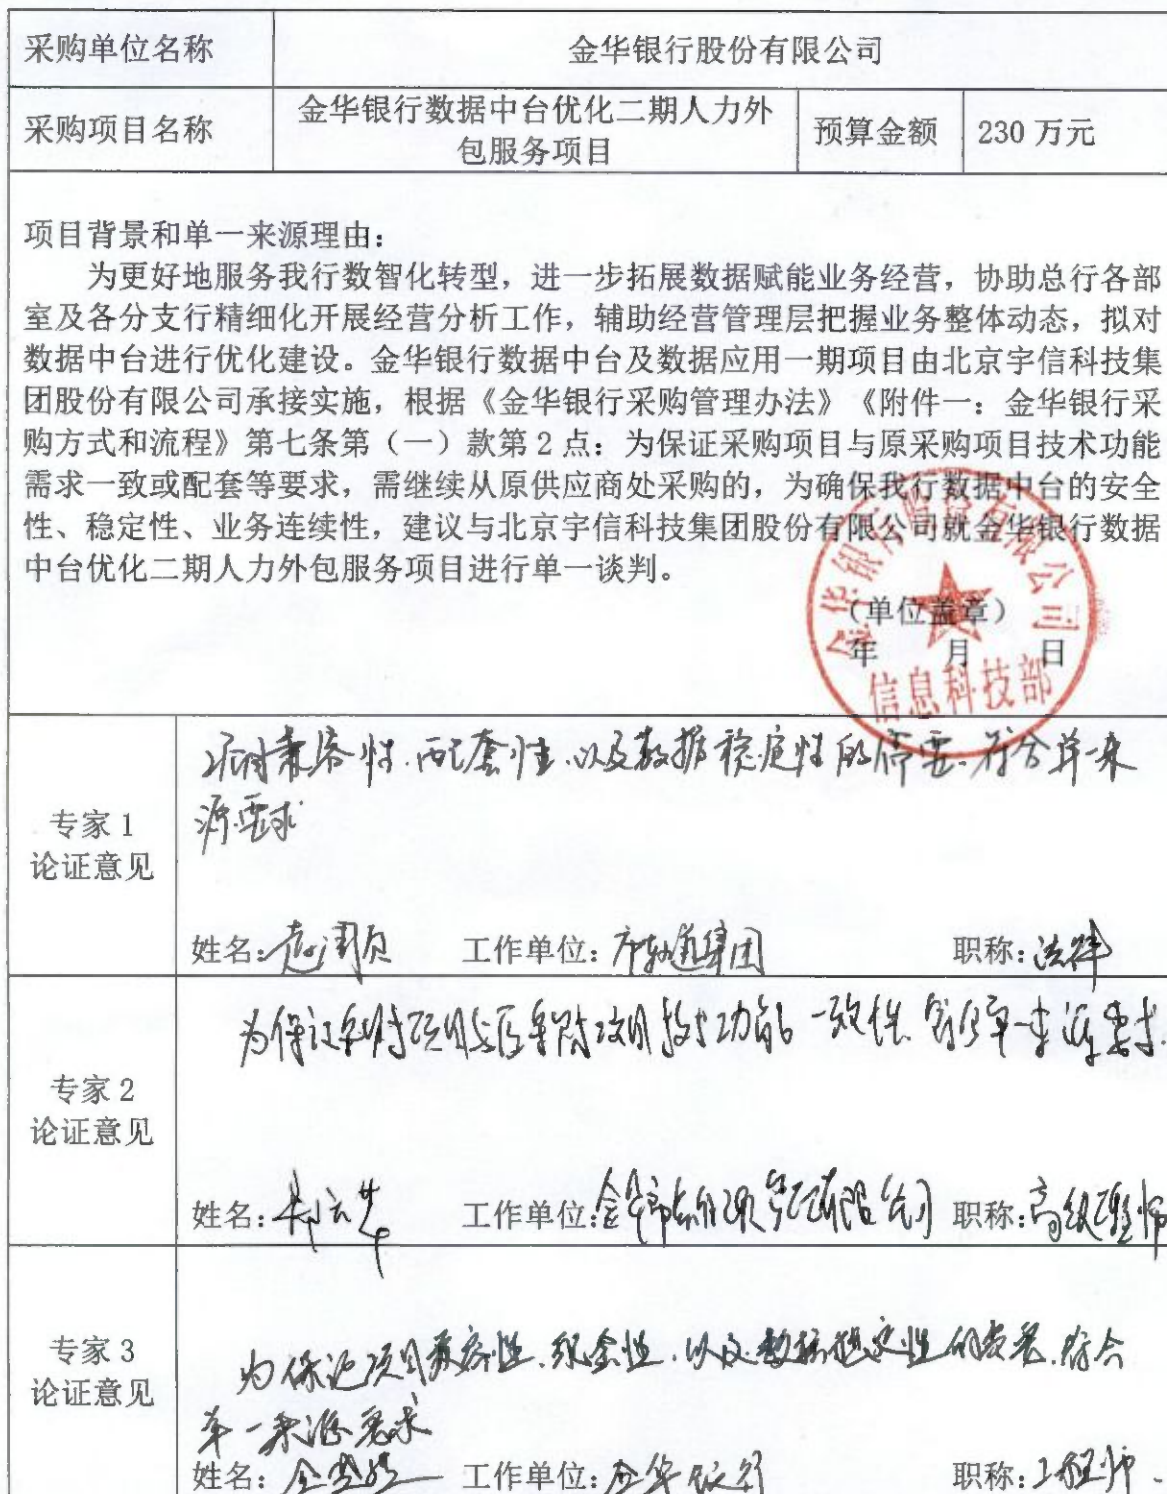 采购单位名称 金华银行股份有限公司
采购项目名称 金华银行数据中台优化二期人力外包服务项目 预算金额 230 万元
项目背景和单一来源理由:
为更好地服务我行数智化转型,进一步拓展数据赋能业务经营,协助总行各部
室及各分支行精细化开展经营分析工作,辅助经营管理层把握业务整体动态,拟对
数据中台进行优化建设。金华银行数据中台及数据应用一期项目由北京宇信科技集
团股份有限公司承接实施,根据《金华银行采购管理办法》《附件一:金华银行采
购方式和流程》第七条第(一)款第 2 点:为保证采购项目与原采购项目技术功能
需求一致或配套等要求,需继续从原供应商处采购的,为确保我行数据中台的安全
性、稳定性、业务连续性,建议与北京宇信科技集团股份有限公司就金华银行数据
中台优化二期人力外包服务项目进行单一谈判。
金华银行股份有限公司
(单位盖章)
年 月 日
信息科技部
兼容性、配套性、以及数据稳定性的需要、符合单一来
源要求
专家 1
论证意见
姓名: 工作单位:市轨道集团 职称:
为保证采购项目与原采购项目技术功能一致性 符合单一来源要求.
专家 2
论证意见
姓名: 工作单位: 职称:高级工程师
专家 3
论证意见
为保证项目兼容性、配套性、以及数据稳定性的需要、符合
单一来源要求
姓名: 工作单位:金华银行 职称:工程师